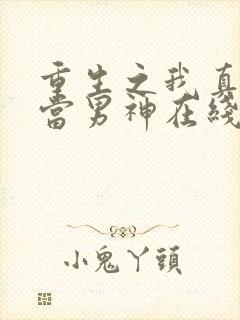 重生之我真
當男神在綫
小鬼丫頭